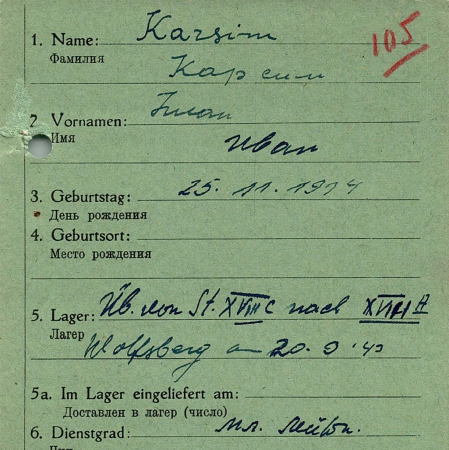 1. Name: Karsim
105
Фамилия
Карсим
2 Vornamen: Iwan
Имя
Иван
3. Geburtstag: 25. 11. 1914
День рождения
4. Geburtsort:
Место рождения
5. Lager: Üb. von St. XVIII C nach XVIII A
Лагерь
Wolfsberg am 20. 9. 43
5a. Im Lager eingeliefert am:
Доставлен в лагерь (число)
6. Dienstgrad: мл. лейт.